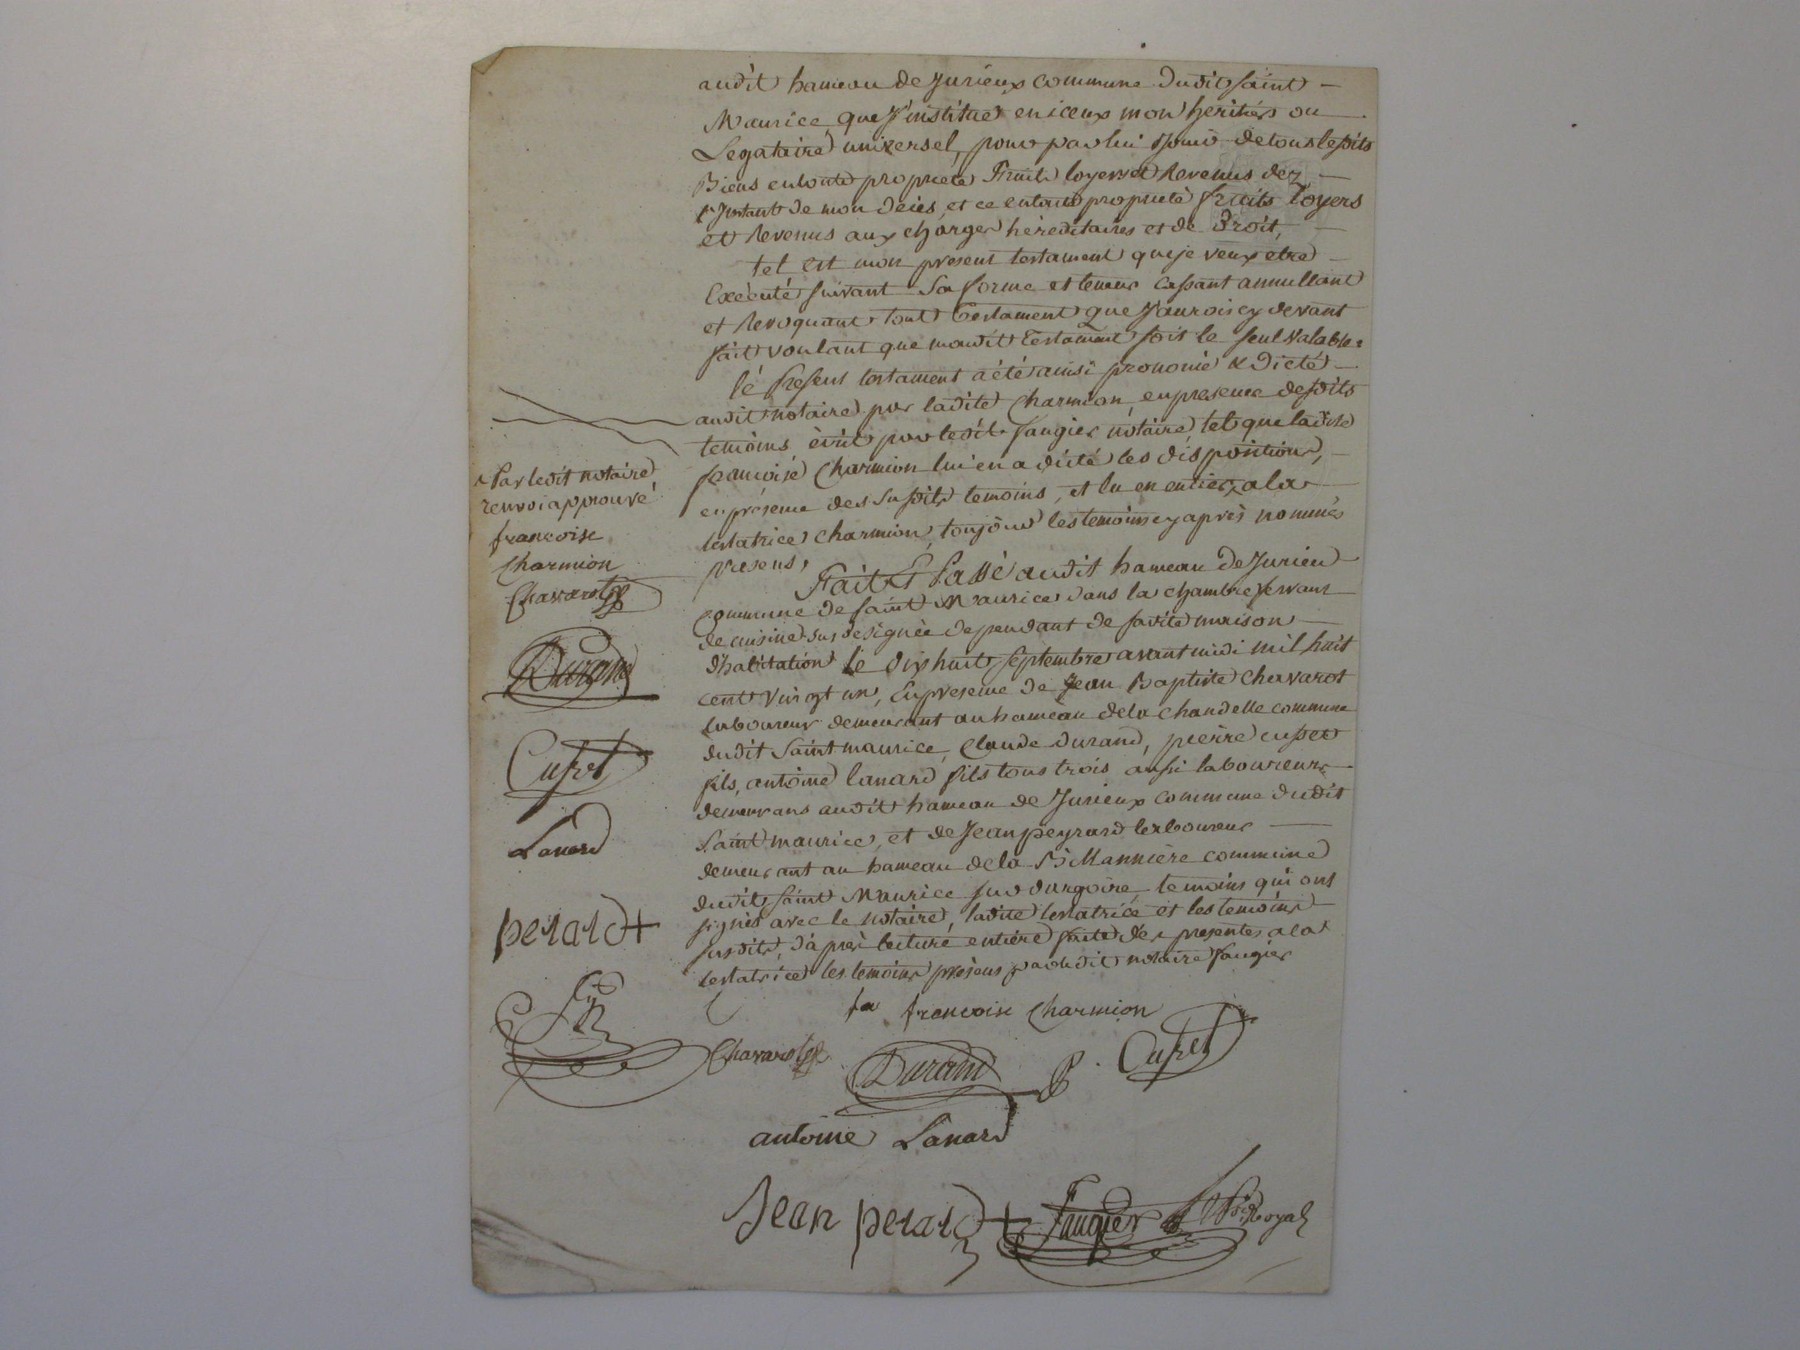 audit hameau de Jurieux commune dudit saint
Maurice, que j'institue en iceux mon heritier ou
Legataire universel, pour par lui jouir de tous lesdits
Biens en toute propriete Fruits loyers et Revenus dez
l'Instant de mon deces, et ce en toute proprieté fruits loyers
et Revenus aux charges héréditaires et de Droit,
tel est mon present testament que je veux etre
Exécuté suivant sa forme et teneur cassant annullant
et Revoquant tout testament que j'aurois cy devant
fait voulant que mondit testament soit le seul valable.
lé présent testament a été ainsi prononcé & Dicté
audit notaire par ladite Charmion, en presence desdits
temoins, écrit par ledit faugier notaire, tel que ladite
françoise Charmion lui en a dicté les dispositions,
en présence des susdits temoins, et lu en entier, a la
testatrice Charmion, toujours les temoins cy après nommés
presens,
Fait et Passé audit hameau de Jurieu
commune de saint Maurice dans la chambre servant
de cuisine susdesignée dependant de sadite maison
d'habitation le dix huit septembre avant midi mil huit
cent vingt un, En presence de Jean Baptiste Chavarot
laboureur demeurant au hameau de la Chandelle commune
dudit Saint maurice, Claude Durand, pierre cusset
fils, antoine lanard fils tous trois aussi laboureurs
demeurans audit hameau de Jurieux commune dudit
Saint maurice, et de Jean peyrard laboureur
demeurant au hameau de la commune
dudit saint Maurice sur dargoire, temoins qui ont
signés avec le notaire, ladite testatrice et les temoins
susdits, d'après lecture entière faite des presentes a la
testatrice les temoins présens par ledit notaire faugier
Par ledit notaire
renvoi approuvé
francoise
Charmion
Chavarot
Durand
Cuset
Lanard
perard +
fa francoise Charmion
Chavarot
Durand
P. Cuset
antoine Lanard
Jean perard +
Faugier
Royal